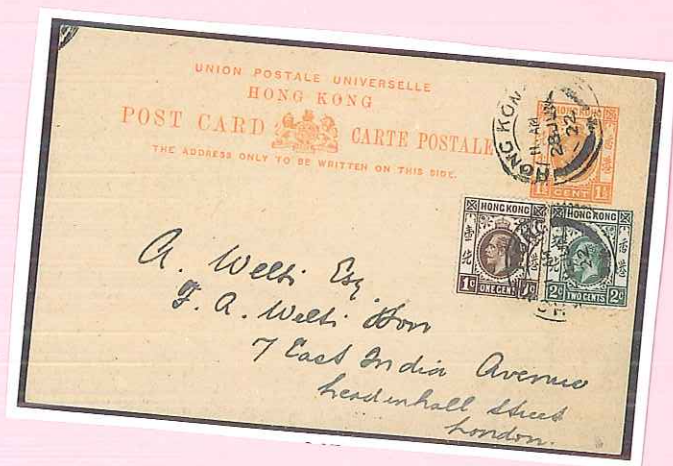 UNION POSTALE UNIVERSELLE
HONG KONG
POST CARD CARTE POSTALE
THE ADDRESS ONLY TO BE WRITTEN ON THIS SIDE.
HONG KONG
11 AM
28 JU
22
HONG KONG
CENT
HONG KONG
香港
壹
1c ONE CENT
HONG KONG
香港
2c TWO CENTS 2c
A. Welti Esq
F. A. Welti
7 East India Avenue
Leadenhall Street
London.